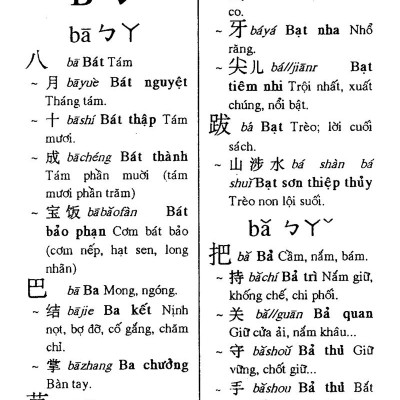 bā ㄅㄚ
八 bā Bát Tám
~ 月 bāyuè Bát nguyệt
Tháng tám.
~ 十 bāshí Bát thập Tám
mươi.
~ 成 bāchéng Bát thành
Tám phần mười (tám
mươi phần trăm)
~ 宝饭 bābǎofàn Bát
bảo phạn Cơm bát bảo
(cơm nếp, hạt sen, long
nhãn)
巴 bā Ba Mong, ngóng.
~ 结 bājie Ba kết Nịnh
nọt, bợ đỡ, cố gắng, chăm
chỉ.
~ 掌 bāzhang Ba chưởng
Bàn tay.
co.
~ 牙 báyá Bạt nha Nhổ
răng.
~ 尖儿 bá//jiānr Bạt
tiêm nhi Trội nhất, xuất
chúng, nổi bật.
跋 bá Bạt Trèo; lời cuối
sách.
~ 山涉水 bá shàn bá
shuǐ Bạt sơn thiệp thủy
Trèo non lội suối.
bǎ ㄅㄚˇ
把 bǎ Bả Cầm, nắm, bám.
~ 持 bǎchí Bả trì Nắm giữ,
khống chế, chi phối.
~ 关 bǎ//guān Bả quan
Giữ cửa ải, nắm khâu...
~ 守 bǎshoǔ Bả thủ Giữ
vững, chốt giữ...
~ 手 bǎshou Bả thủ Bắt